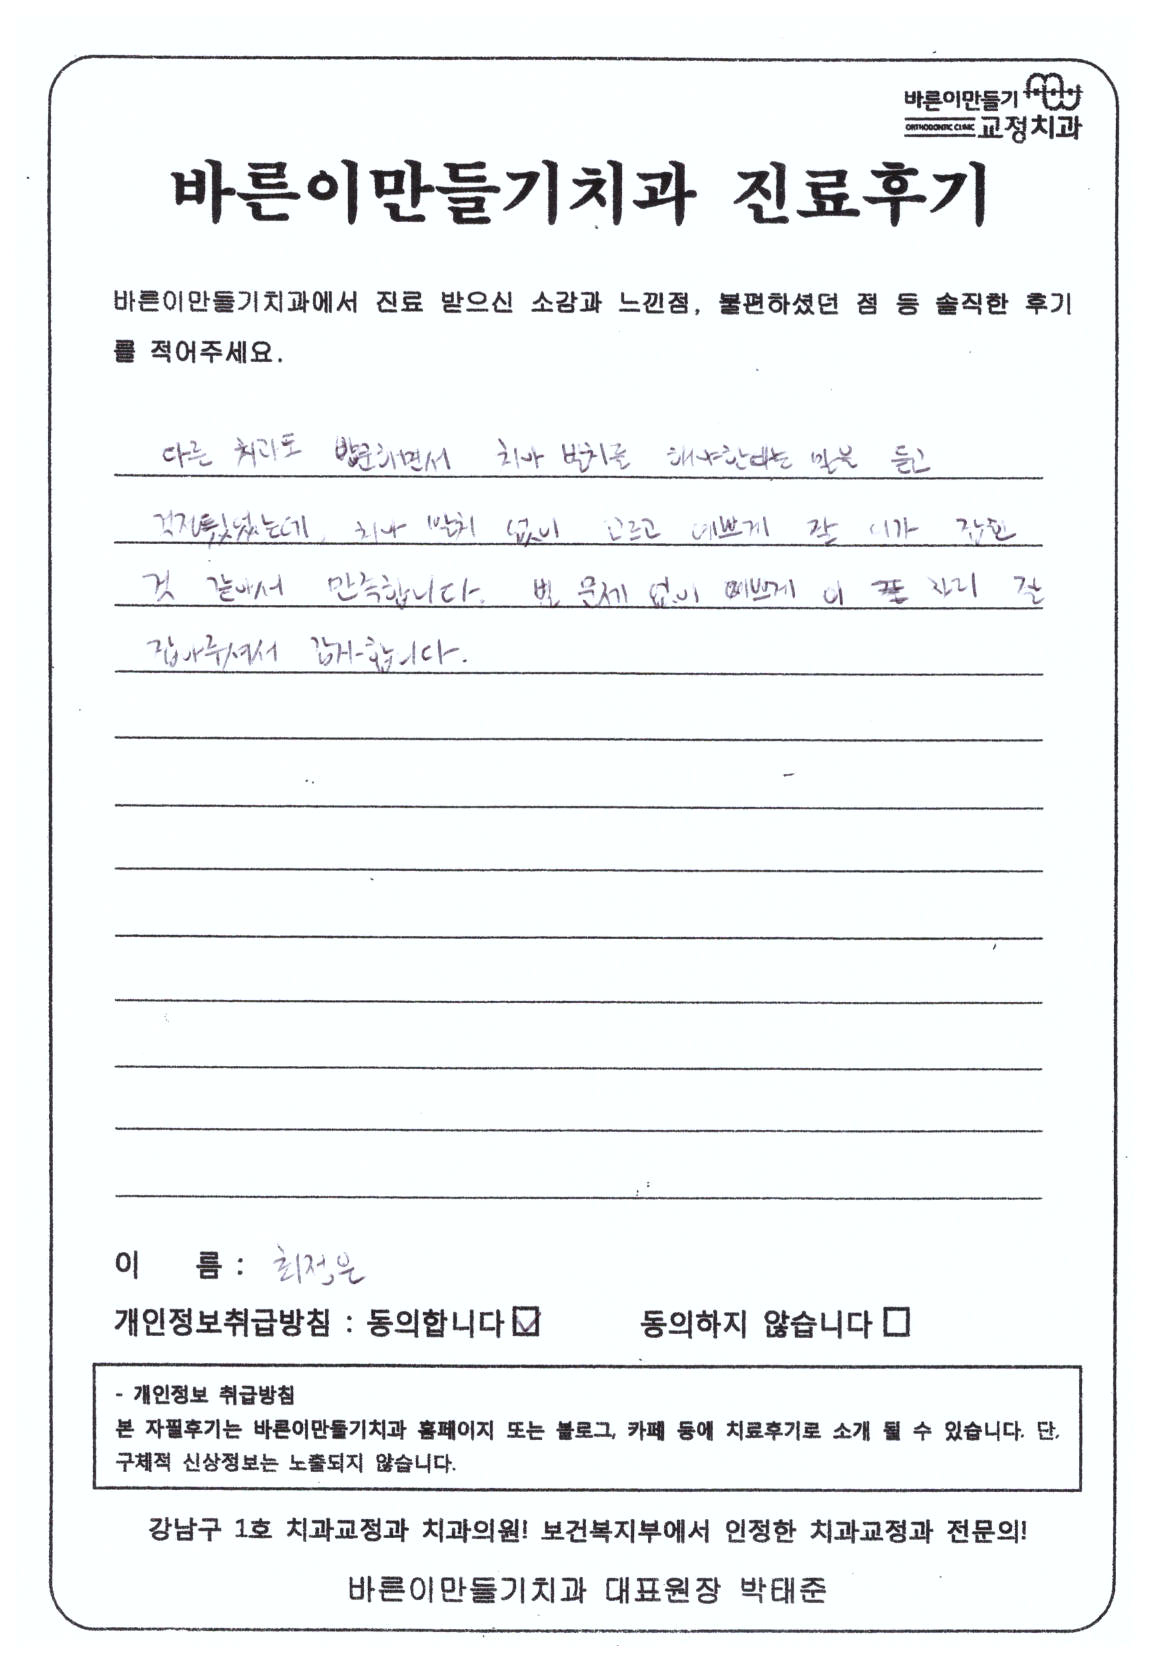 바른이만들기
ORTHODONTIC CLINIC 교정치과
바른이만들기치과 진료후기
바른이만들기치과에서 진료 받으신 소감과 느낀점, 불편하셨던 점 등 솔직한 후기
를 적어주세요.
다른 치과도 방문하면서 치아 발치를 해야한다는 말을 듣고
걱정했었는데, 치아 발치 없이 고르고 예쁘게 잘 이가 잡힌
것 같아서 만족합니다. 별 문제 없이 예쁘게 이 자리 잘
잡아주셔서 감사합니다.
이 름 : 최정은
개인정보취급방침 : 동의합니다 ☑ 동의하지 않습니다 □
- 개인정보 취급방침
본 자필후기는 바른이만들기치과 홈페이지 또는 블로그, 카페 등에 치료후기로 소개 될 수 있습니다. 단,
구체적 신상정보는 노출되지 않습니다.
강남구 1호 치과교정과 치과의원! 보건복지부에서 인정한 치과교정과 전문의!
바른이만들기치과 대표원장 박태준